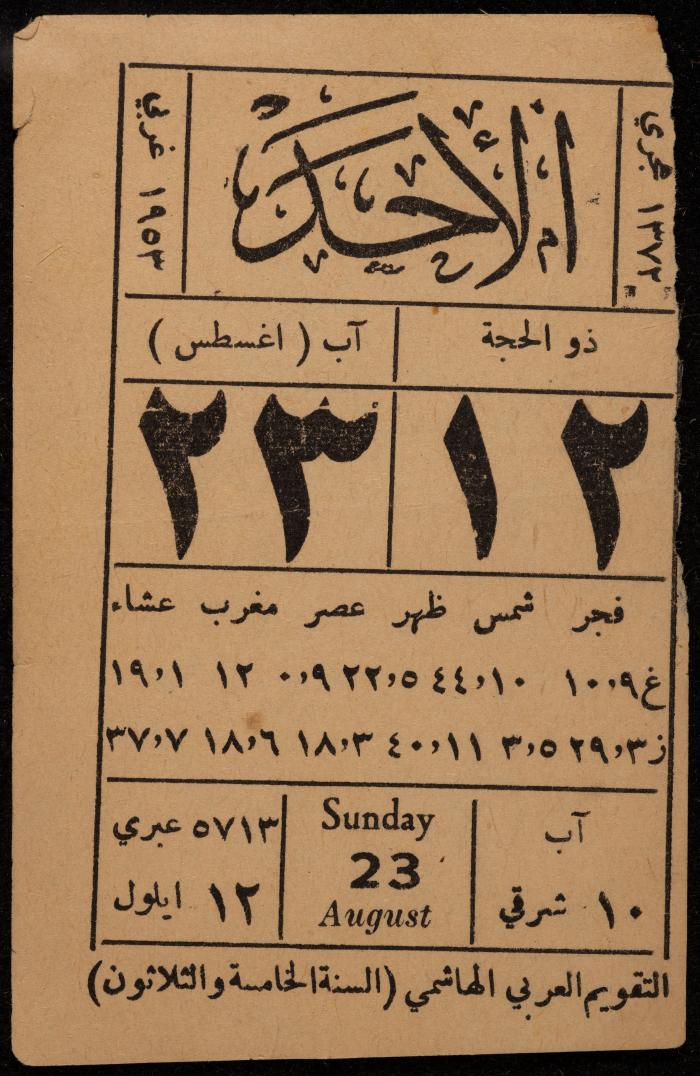 ١٣٧٢ هجري
الأحد
١٩٥٣ غربي
ذو الحجة
آب ( اغسطس )
١٢
٢٣
فجر شمس ظهر عصر مغرب عشاء
غ ١٠,٩ ٤٤,١٠ ٢٢,٥ ٠,٩ ١٢ ١٩,١
ز ٢٩,٣ ٣,٥ ٤٠,١١ ١٨,٣ ١٨,٦ ٣٧,٧
آب
١٠ شرقي
Sunday
23
August
٥٧١٣ عبري
١٢ ايلول
التقويم العربي الهاشمي (السنة الخامسة والثلاثون)